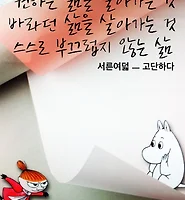 원하는 삶을 살아가는 것
바라던 삶을 살아가는 것
스스로 부끄럽지 않는 삶
서른여덟 — 고단하다